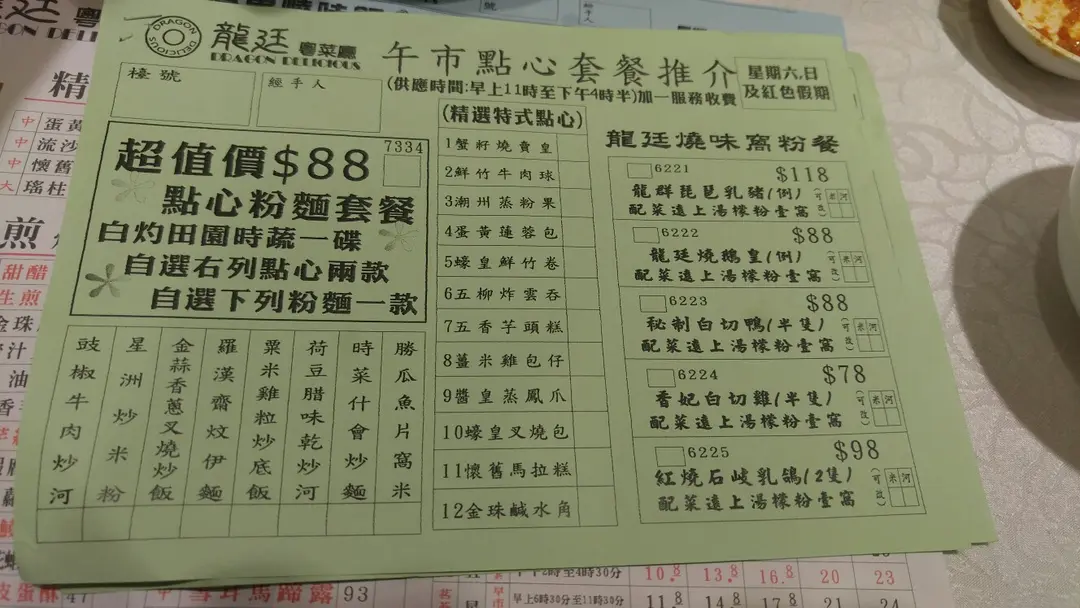 DRAGON DELICIOUS
龍廷 粵菜廳
DRAGON DELICIOUS
午市點心套餐推介
(供應時間:早上11時至下午4時半)加一服務收費
星期六,日
及紅色假期
檯號
經手人
超值價$88
7334
點心粉麵套餐
白灼田園時蔬一碟
自選右列點心兩款
自選下列粉麵一款
豉椒牛肉炒河
星洲炒米粉
金蒜香蔥叉燒炒飯
羅漢齋炆伊麵
粟米雞粒炒底飯
荷豆腊味乾炒河
時菜什會炒麵
勝瓜魚片窩米
(精選特式點心)
1蟹籽燒賣皇
2鮮竹牛肉球
3潮州蒸粉果
4蛋黃蓮蓉包
5蠔皇鮮竹卷
6五柳炸雲吞
7五香芋頭糕
8薑米雞包仔
9醬皇蒸鳳爪
10蠔皇叉燒包
11懷舊馬拉糕
12金珠鹹水角
龍廷燒味窩粉餐
6221 $118
龍群琵琶乳豬(例)
配菜遠上湯檬粉壹窩
(可改) 米 河
6222 $88
龍廷燒鵝皇(例)
配菜遠上湯檬粉壹窩
(可改) 米 河
6223 $88
秘制白切鴨(半隻)
配菜遠上湯檬粉壹窩
(可改) 米 河
6224 $78
香妃白切雞(半隻)
配菜遠上湯檬粉壹窩
(可改) 米 河
6225 $98
紅燒石岐乳鴿(2隻)
配菜遠上湯檬粉壹窩
(可改) 米 河
精
中 蛋黃
中 流沙
中 懷舊
大 瑤柱
煎
甜醋
生煎
金珠
47
中 雪耳馬蹄露 93
10.8 13.8 16.8 20 23
早上6時30分至11時30分
11.8 14.8 17.8 21 24